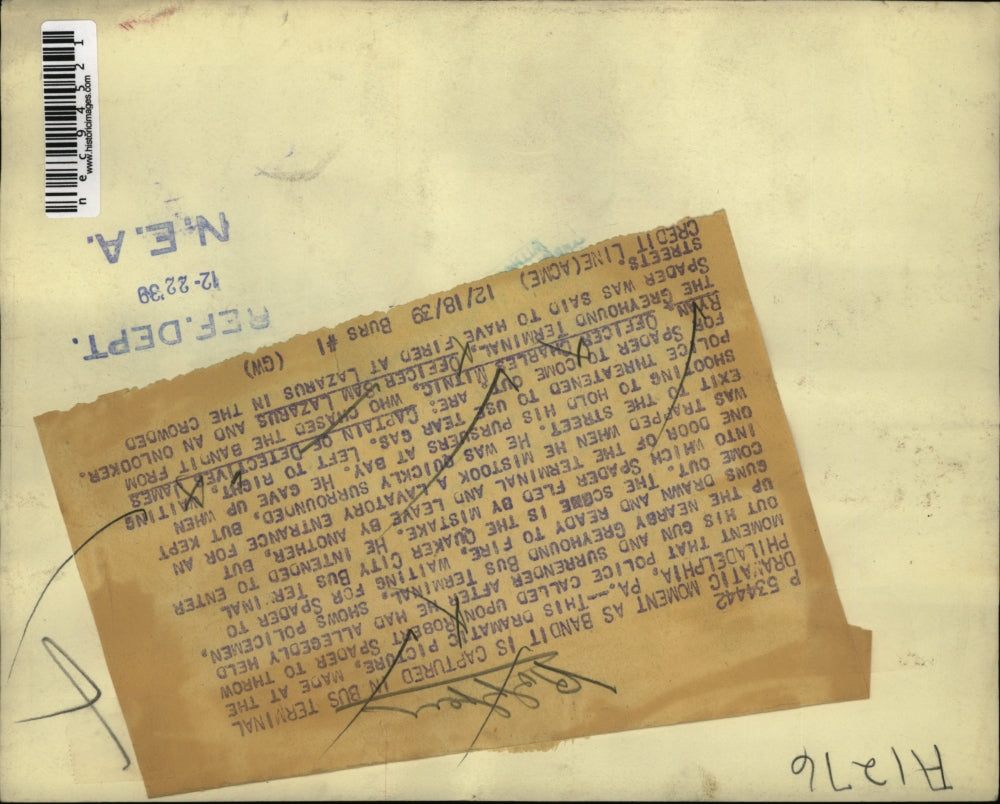 nec94521
www.historicimages.com
N.E.A.
12-22 39
REF. DEPT.
P 534442
DRAMATIC MOMENT AS BANDIT IS CAPTURED IN BUS TERMINAL
PHILADELPHIA, PA.--THIS DRAMATIC PICTURE, MADE AT THE
MOMENT THAT POLICE CALLED UPON ROBERT SPADER TO THROW
OUT HIS GUN AND SURRENDER AFTER HE HAD ALLEGEDLY HELD
UP THE NEARBY GREYHOUND BUS TERMINAL, SHOWS POLICEMEN,
GUNS DRAWN AND READY TO FIRE, WAITING FOR SPADER TO
COME OUT. THE SCENE IS THE QUAKER CITY BUS TER INAL
INTO WHICH SPADER FLED BY MISTAKE. HE INTENDED TO ENTER
ONE DOOR OF THE TERMINAL AND LEAVE BY ANOTHER, BUT
WAS TRAPPED WHEN HE MISTOOK A LAVATORY ENTRANCE FOR AN
EXIT TO THE STREET. HE WAS QUICKLY SURROUNDED, BUT KEPT
SHOOTING TO HOLD HIS PURSUERS AT BAY. HE GAVE UP WHEN
POLICE THREATENED TO USE TEAR GAS. LEFT TO RIGHT, WAITING
FOR SPADER TO COME OUT ARE: CAPTAIN OF DETECTIVES JAMES
RYAN, OFFICER CHARLES MITNIC, WHO CHASED THE BANDIT FROM
THE GREYHOUND TERMINAL, OFFICER SAM LAZARUS AND AN ONLOOKER.
SPADER WAS SAID TO HAVE FIRED AT LAZARUS IN THE CROWDED
STREETS.
CREDIT LINE (ACME) 12/18/39 BURS #1 (GW)
A1276